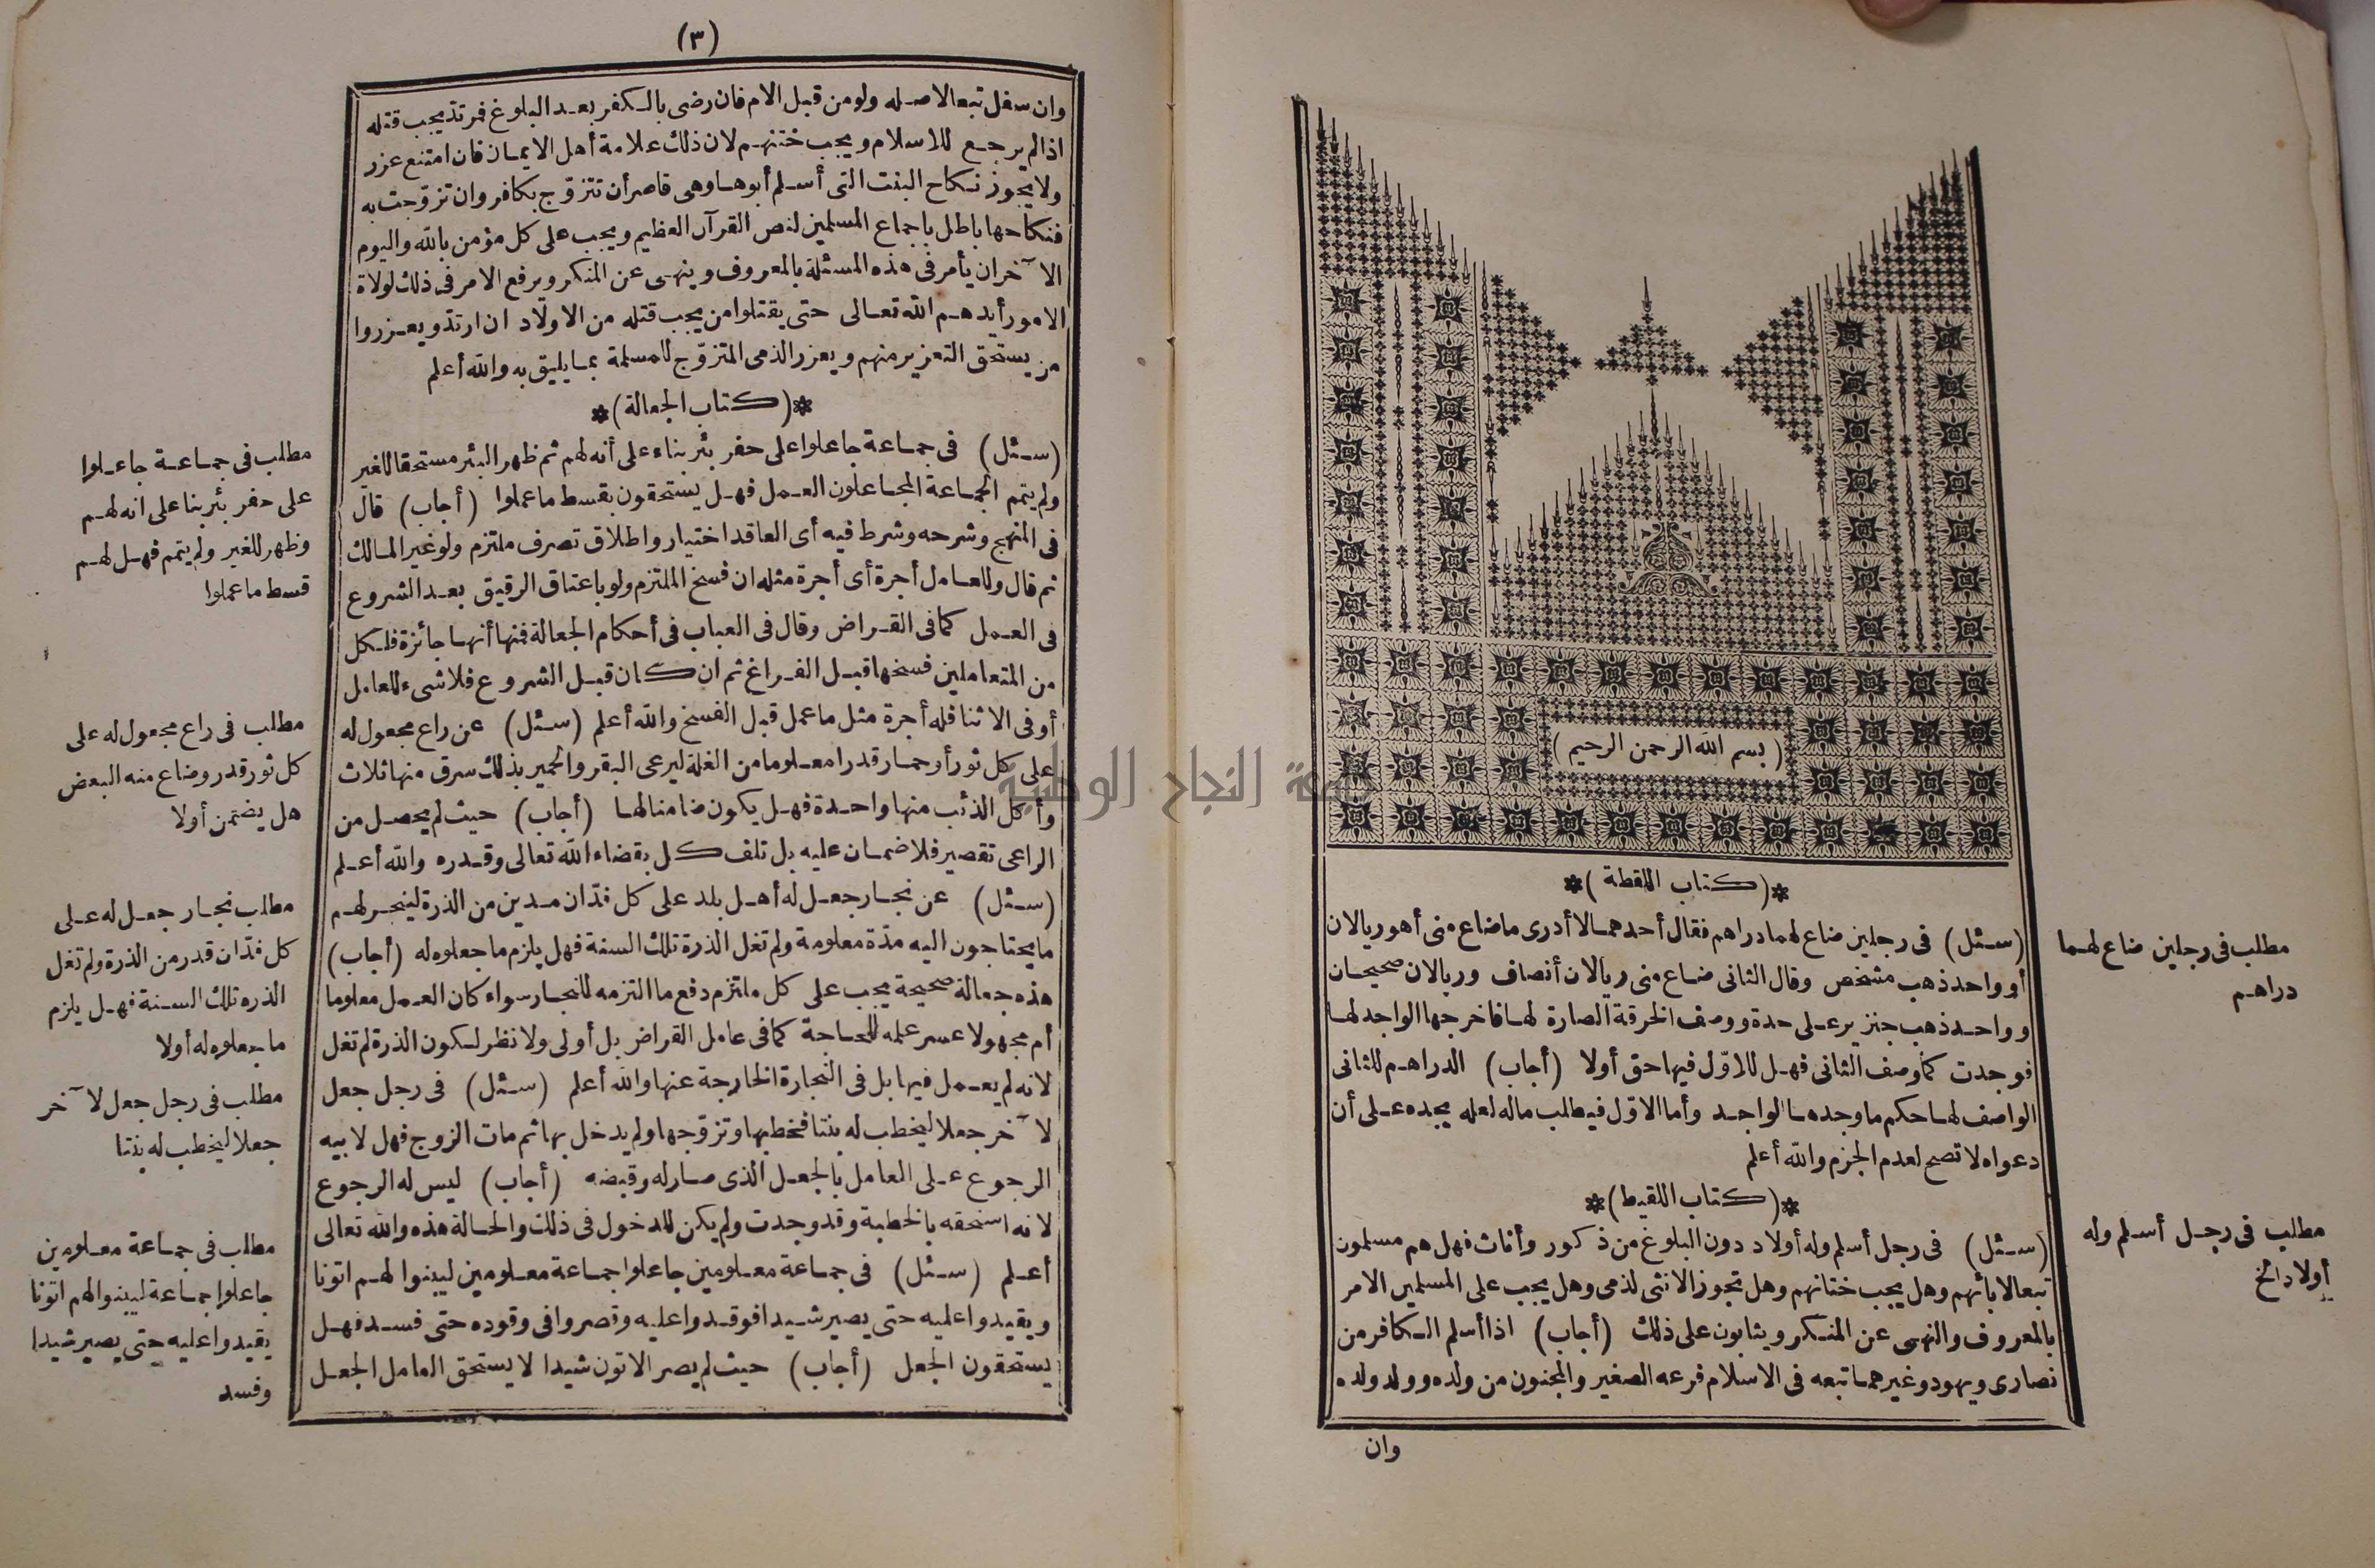 ( بسم الله الرحمن الرحيم )
*( كتاب اللقطة )*
(سئل) فى رجلين ضاع لهما دراهم فقال أحدهما لا أدرى ما ضاع منى أهو ريالان
أو واحد ذهب مشخص وقال الثانى ضاع منى ريالان أنصاف وريالان صحيحان
وواحد ذهب جنزير على حدة ووصف الخرقة الصارة لها فاخرجها الواجد لها
فوجدت كما وصف الثانى فهل للاوّل فيها حق أولا (أجاب) الدراهم للثانى
الواصف لها حكم ما وجدها الواجد وأما الاوّل فيطلب ماله لعله يجده على أن
دعواه لا تصح لعدم الجزم والله أعلم
*( كتاب اللقيط )*
(سئل) فى رجل أسلم وله أولاد دون البلوغ من ذكور وأناث فهل هم مسلمون
تبعا لابائهم وهل يجب ختانهم وهل تجوز الانثى لذمى وهل يجب على المسلمين الامر
بالمعروف والنهى عن المنكر ويثابون على ذلك (أجاب) اذا أسلم الكافر من
نصارى ويهود وغيرهما تبعه فى الاسلام فرعه الصغير والمجنون من ولده وولد ولده
وان
مطلب فى رجلين ضاع لهما
دراهم
مطلب فى رجل أسلم وله
أولاد الخ
(٣)
وان سفل تبعا لاصله ولو من قبل الام فان رضى بالكفر بعد البلوغ فمرتد يجب قتله
اذا لم يرجع للاسلام ويجب ختنهم لان ذلك علامة أهل الايمان فان امتنع عزر
ولا يجوز نكاح البنت التى أسلم أبوها وهى قاصر أن تتزوّج بكافر وان تزوّجت به
فنكاحها باطل باجماع المسلمين لنص القرآن العظيم ويجب على كل مؤمن بالله واليوم
الآخر ان يأمر فى هذه المسئلة بالمعروف وينهى عن المنكر ويرفع الامر فى ذلك لولاة
الامور أيدهم الله تعالى حتى يقتلوا من يجب قتله من الاولاد ان ارتد ويعزروا
من يستحق التعزير منهم ويعزر الذمى المتزوّج للمسلمة بما يليق به والله أعلم
*( كتاب الجعالة )*
(سئل) فى جماعة جاعلوا على حفر بئر بناء على أنه لهم ثم ظهر البئر مستحقا للغير
ولم يتمم الجماعة المجاعلون العمل فهل يستحقون بقسط ما عملوا (أجاب) قال
فى المنهج وشرحه وشرط فيه أى العاقد اختيار واطلاق تصرف ملتزم ولو غير المالك
ثم قال وللعامل أجرة أى أجرة مثله ان فسخ الملتزم ولو باعتاق الرقيق بعد الشروع
فى العمل كما فى القراض وقال فى العباب فى أحكام الجعالة فنها أنها جائزة فلكل
من المتعاملين فسخها قبل الفراغ ثم ان كان قبل الشروع فلا شىء للعامل
أو فى الاثنا فله أجرة مثل ما عمل قبل الفسخ والله أعلم (سئل) عن راع مجعول له
على كل ثور أو حمار قدرا معلوما من الغلة ليرعى البقر والحمير بذلك سرق منها ثلاث
وأكل الذئب منها واحدة فهل يكون ضامنا لها (أجاب) حيث لم يحصل من
الراعى تقصير فلا ضمان عليه بل تلف كل بقضاء الله تعالى وقدره والله أعلم
(سئل) عن نجار جعل له أهل بلد على كل فدّان مدين من الذرة لينجر لهم
ما يحتاجون اليه مدّة معلومة ولم تغل الذرة تلك السنة فهل يلزم ما جعلوه له (أجاب)
هذه جعالة صحيحة يجب على كل ملتزم دفع ما التزمه للنجار سواء كان العمل معلوما
أم مجهولا عسر علمه للحاجة كما فى عامل القراض بل أولى ولا نظر لكون الذرة لم تغل
لانه لم يعمل فيها بل فى النجارة الخارجة عنها والله أعلم (سئل) فى رجل جعل
لآخر جعلا ليخطب له بنتا فخطبها وتزوّجها ولم يدخل بها ثم مات الزوج فهل لابيه
الرجوع على العامل بالجعل الذى صار له وقبضه (أجاب) ليس له الرجوع
لانه استحقه بالخطبة وقد وجدت ولم يكن للدخول فى ذلك والحالة هذه والله تعالى
أعلم (سئل) فى جماعة معلومين جاعلوا جماعة معلومين ليبنوا لهم اتونا
ويقيدوا عليه حتى يصير شيدا فوقدوا عليه وقصروا فى وقوده حتى فسد فهل
يستحقون الجعل (أجاب) حيث لم يصر الاتون شيدا لا يستحق العامل الجعل
مطلب فى جماعة جاعلوا
على حفر بئر بنا على انه لهم
وظهر للغير ولم يتمم فهل لهم
قسط ما عملوا
مطلب فى راع مجعول له على
كل ثور قدر وضاع منه البعض
هل يضمن أولا
مطلب نجار جعل له على
كل فدّان قدر من الذرة ولم تغل
الذره تلك السنة فهل يلزم
ما جعلوه له أولا
مطلب فى رجل جعل لآخر
جعلا ليخطب له بنتا
مطلب فى جماعة معلومين
جاعلوا جماعة ليبنوا لهم اتونا
يقيدوا عليه حتى يصير شيدا
وفسد
جامعة النجاح الوطنية